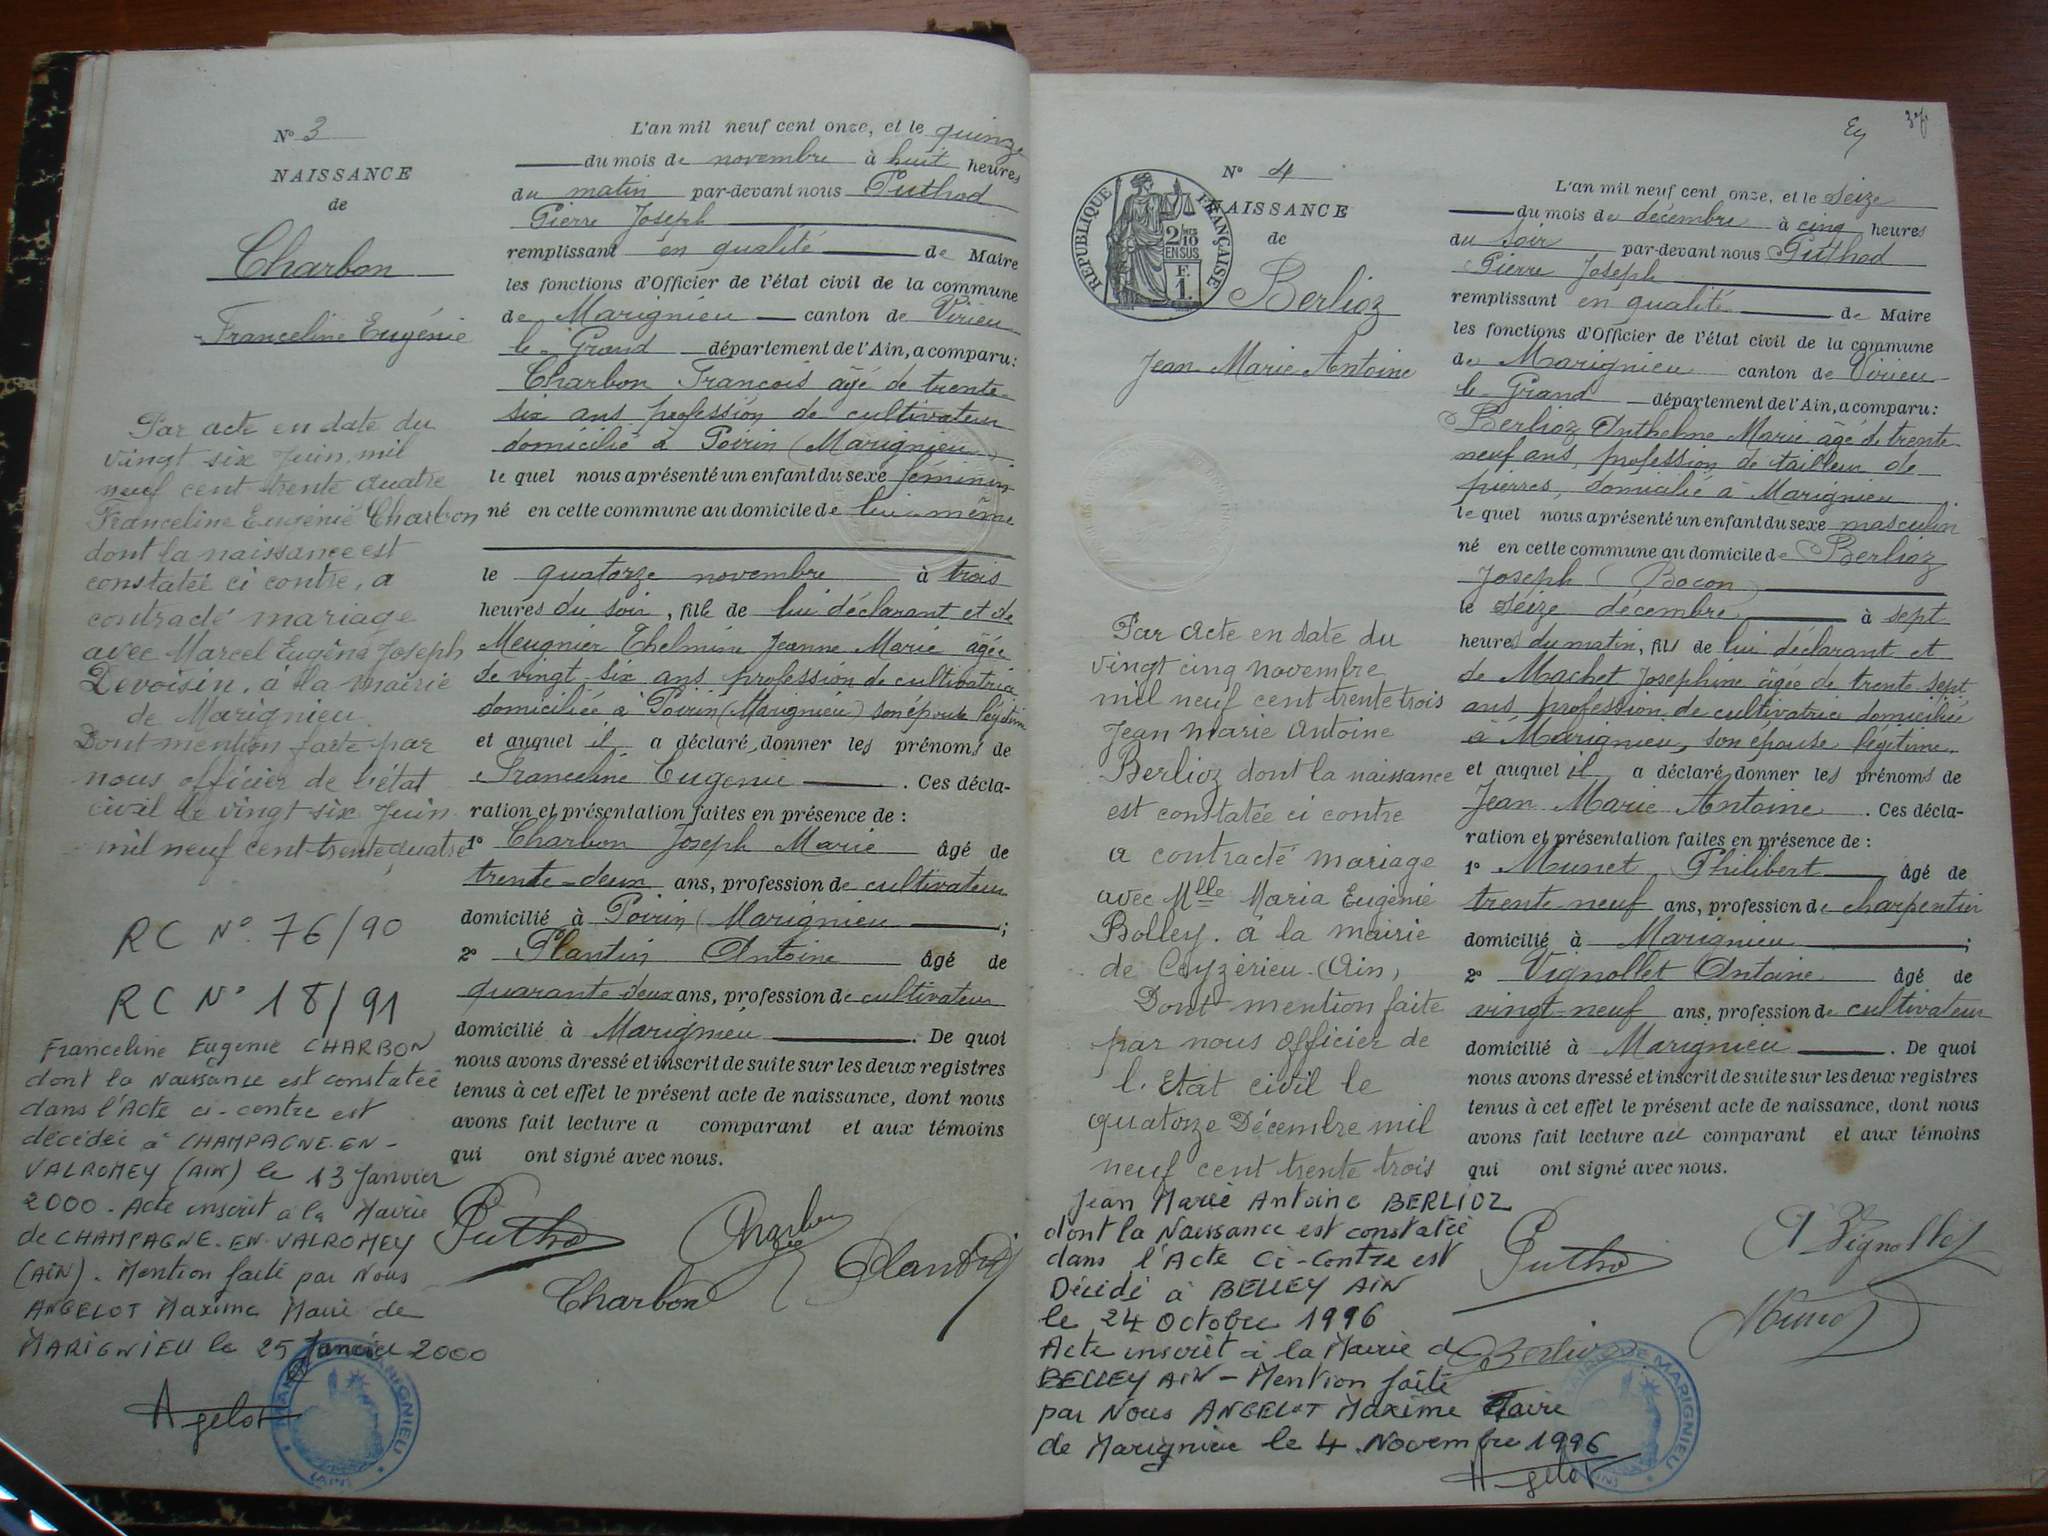 N° 3
NAISSANCE
de
Charbon
Franceline Eugénie
Par acte en date du
vingt six Juin mil
neuf cent trente quatre
Franceline Eugénie Charbon
dont la naissance est
constatée ci contre, a
contracté mariage
avec Marcel Eugène Joseph
Devoisin, à la mairie
de Marignieu.
Dont mention faite par
nous officier de l'état
civil le vingt six Juin
mil neuf cent trente quatre
RC N° 76/90
RC N° 18/91
Franceline Eugenie CHARBON
dont la Naissance est constatée
dans l'Acte ci-contre est
décédée à CHAMPAGNE-EN-
VALROMEY (AIN) le 13 Janvier
2000. Acte inscrit à la Mairie
de CHAMPAGNE-EN-VALROMEY
(AIN). Mention faite par Nous
ANGELOT Maxime Maire de
MARIGNIEU le 25 Janvier 2000
Agelot
L'an mil neuf cent onze, et le quinze
du mois de novembre à huit heures
du matin par-devant nous Puthod
Pierre Joseph
remplissant en qualité de Maire
les fonctions d'Officier de l'état civil de la commune
de Marignieu canton de Virieu
le Grand département de l'Ain, a comparu:
Charbon François âgé de trente-
six ans profession de cultivateur
domicilié à Poirin (Marignieu)
le quel nous a présenté un enfant du sexe féminin
né en cette commune au domicile de lui-même
le quatorze novembre à trois
heures du soir, fille de lui déclarant et de
Meugnier Thelmine Jeanne Marie âgée
de vingt-six ans profession de cultivatrice
domiciliée à Poirin (Marignieu) son épouse légitime
et auquel il a déclaré donner les prénoms de
Franceline Eugénie. Ces décla-
ration et présentation faites en présence de :
1° Charbon Joseph Marie âgé de
trente-deux ans, profession de cultivateur
domicilié à Poirin (Marignieu ;
2° Plantin Antoine âgé de
quarante deux ans, profession de cultivateur
domicilié à Marignieu. De quoi
nous avons dressé et inscrit de suite sur les deux registres
tenus à cet effet le présent acte de naissance, dont nous
avons fait lecture a comparant et aux témoins
qui ont signé avec nous.
Putho Charbon Plantin
Charbon
N° 4
NAISSANCE
de
RÉPUBLIQUE FRANÇAISE
2/10
EN SUS
F.
1.
Berlioz
Jean Marie Antoine
Par Acte en date du
vingt cinq novembre
mil neuf cent trente trois
Jean Marie Antoine
Berlioz dont la naissance
est constatée ci contre
a contracté mariage
avec Mlle Maria Eugénie
Bolley. à la mairie
de Ceyzérieu (Ain)
Dont mention faite
par nous officier de
l'Etat civil le
quatorze Décembre mil
neuf cent trente trois
Jean Marie Antoine BERLIOZ
dont la Naissance est constatée
dans l'Acte Ci-Contre est
Décédé à BELLEY AIN
le 24 Octobre 1996
Acte inscrit à la Mairie de
BELLEY AIN - Mention faite
par Nous ANGELOT Maxime Maire
de Marignieu le 4 Novembre 1996
Agelot
L'an mil neuf cent onze, et le seize
du mois de décembre à cinq heures
du soir par-devant nous Puthod
Pierre Joseph
remplissant en qualité de Maire
les fonctions d'Officier de l'état civil de la commune
de Marignieu canton de Virieu
le Grand département de l'Ain, a comparu:
Berlioz Anthelme Marie âgé de trente
neuf ans, profession de tailleur de
pierres, domicilié à Marignieu
le quel nous a présenté un enfant du sexe masculin
né en cette commune au domicile de Berlioz
Joseph (Bocon)
le seize décembre, à sept
heures du matin, fils de lui déclarant et
de Machet Joséphine âgée de trente-sept
ans profession de cultivatrice domiciliée
à Marignieu, son épouse légitime.
et auquel il a déclaré donner les prénoms de
Jean Marie Antoine. Ces décla-
ration et présentation faites en présence de :
1° Munet Philibert âgé de
trente neuf ans, profession de charpentier
domicilié à Marignieu ;
2° Vignollet Antoine âgé de
vingt-neuf ans, profession de cultivateur
domicilié à Marignieu. De quoi
nous avons dressé et inscrit de suite sur les deux registres
tenus à cet effet le présent acte de naissance, dont nous
avons fait lecture au comparant et aux témoins
qui ont signé avec nous.
Putho A Vignollet
Berlioz Munet
MAIRIE DE MARIGNIEU
(AIN)